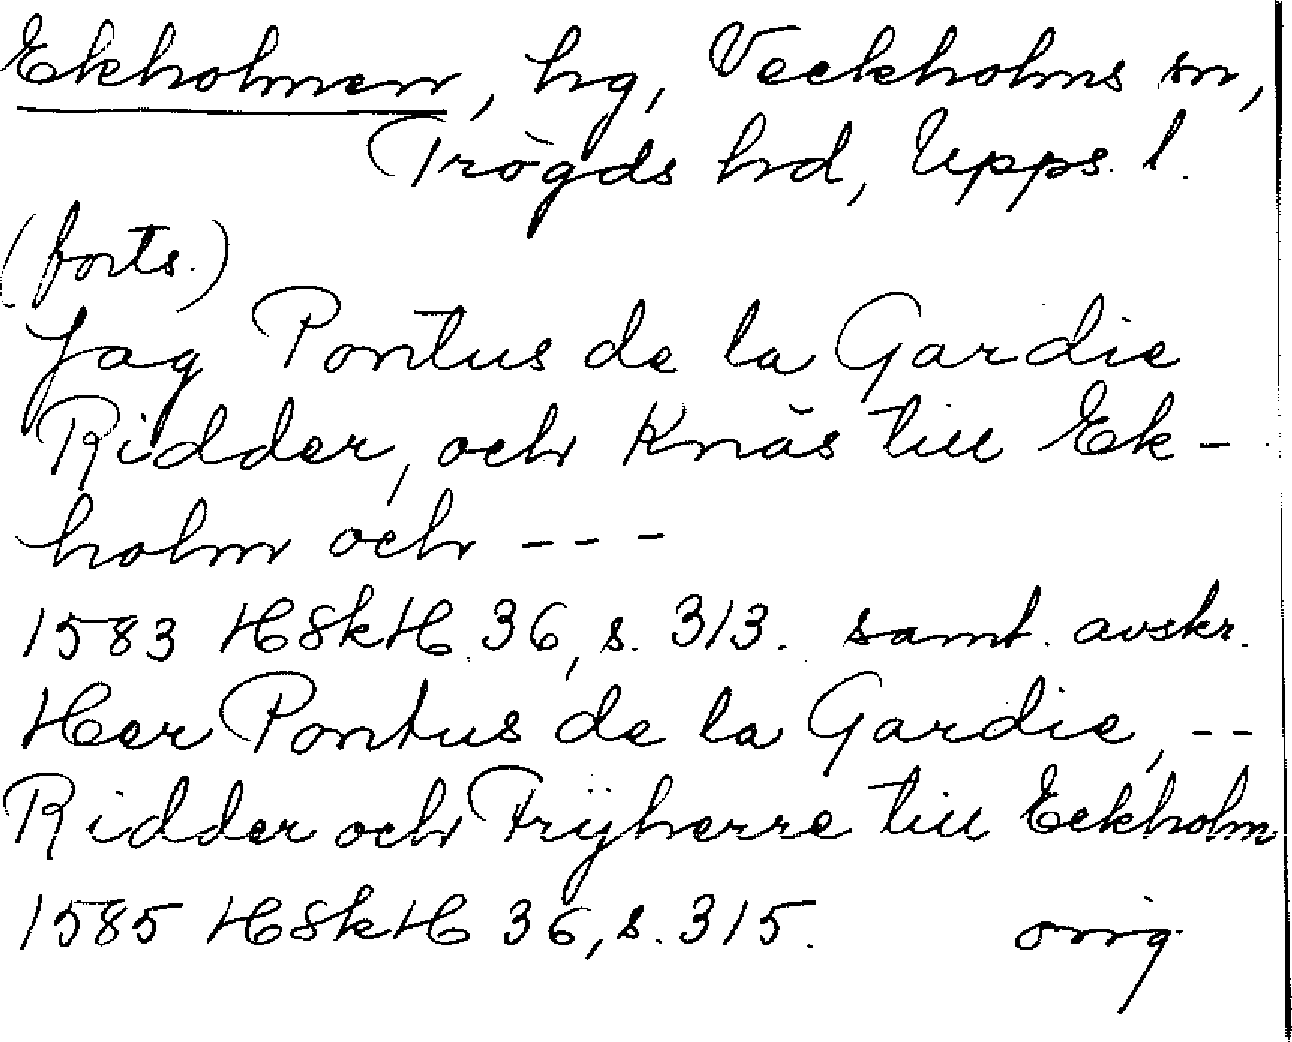 Ekholmen, hg, Veckholms sn,
Trögds hd, Upps. l.
(forts.)
Jag Pontus de la Gardie
Ridder, och Knäs till Ek-
holm och ---
1583 HSkH 36, s. 313. samt. avskr.
Her Pontus de la Gardie, --
Ridder och Frijherre till Eckholm
1585 HSkH 36, s. 315. orig